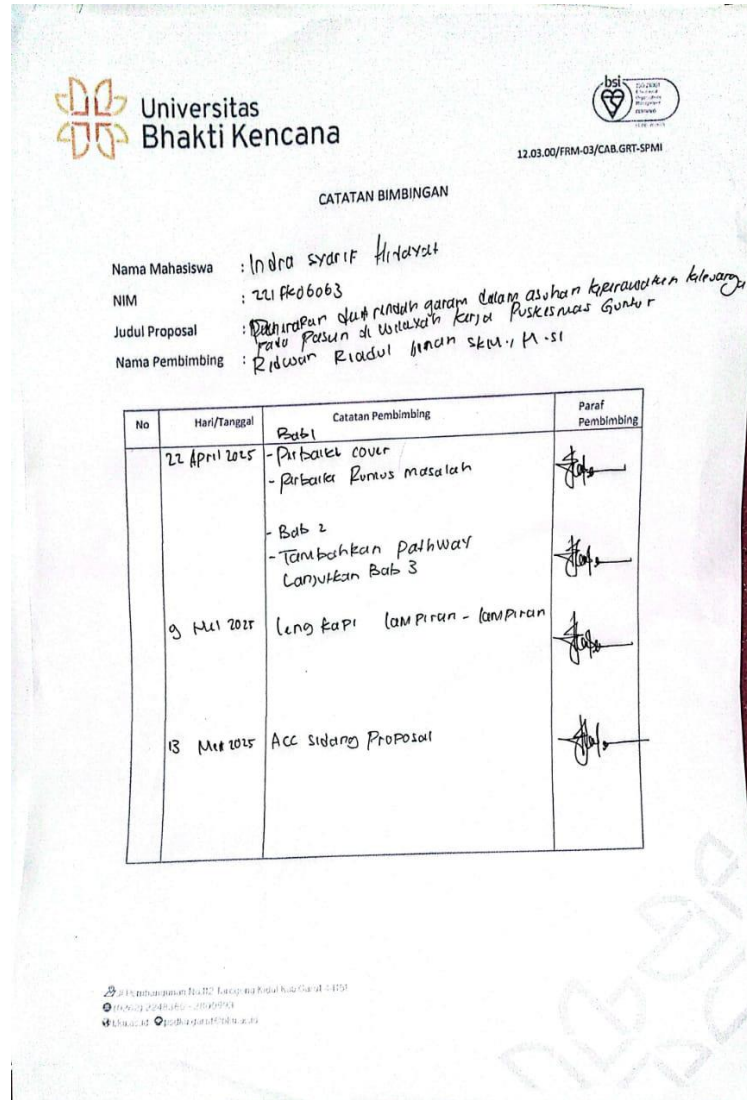 Universitas
Bhakti Kencana
bsi
12.03.00/FRM-03/CAB.GRT-SPMI
CATATAN BIMBINGAN
Nama Mahasiswa : Indra syarif Hidayat
NIM : 221FK06063
Judul Proposal : diet rendah garam dalam asuhan keperawatan keluarga
pada Pasien di wilayah kerja Puskesmas Guntur
Nama Pembimbing : Ridwan Riadul SKM., M.SI
No Hari/Tanggal Catatan Pembimbing Paraf Pembimbing
Bab 1
22 April 2025 - Perbaiki cover
- Perbaiki Rumus masalah
- Bab 2
- Tambahkan pathway
Lanjutkan Bab 3
9 Mei 2025 lengkapi lampiran - lampiran
13 Mei 2025 Acc sidang Proposal